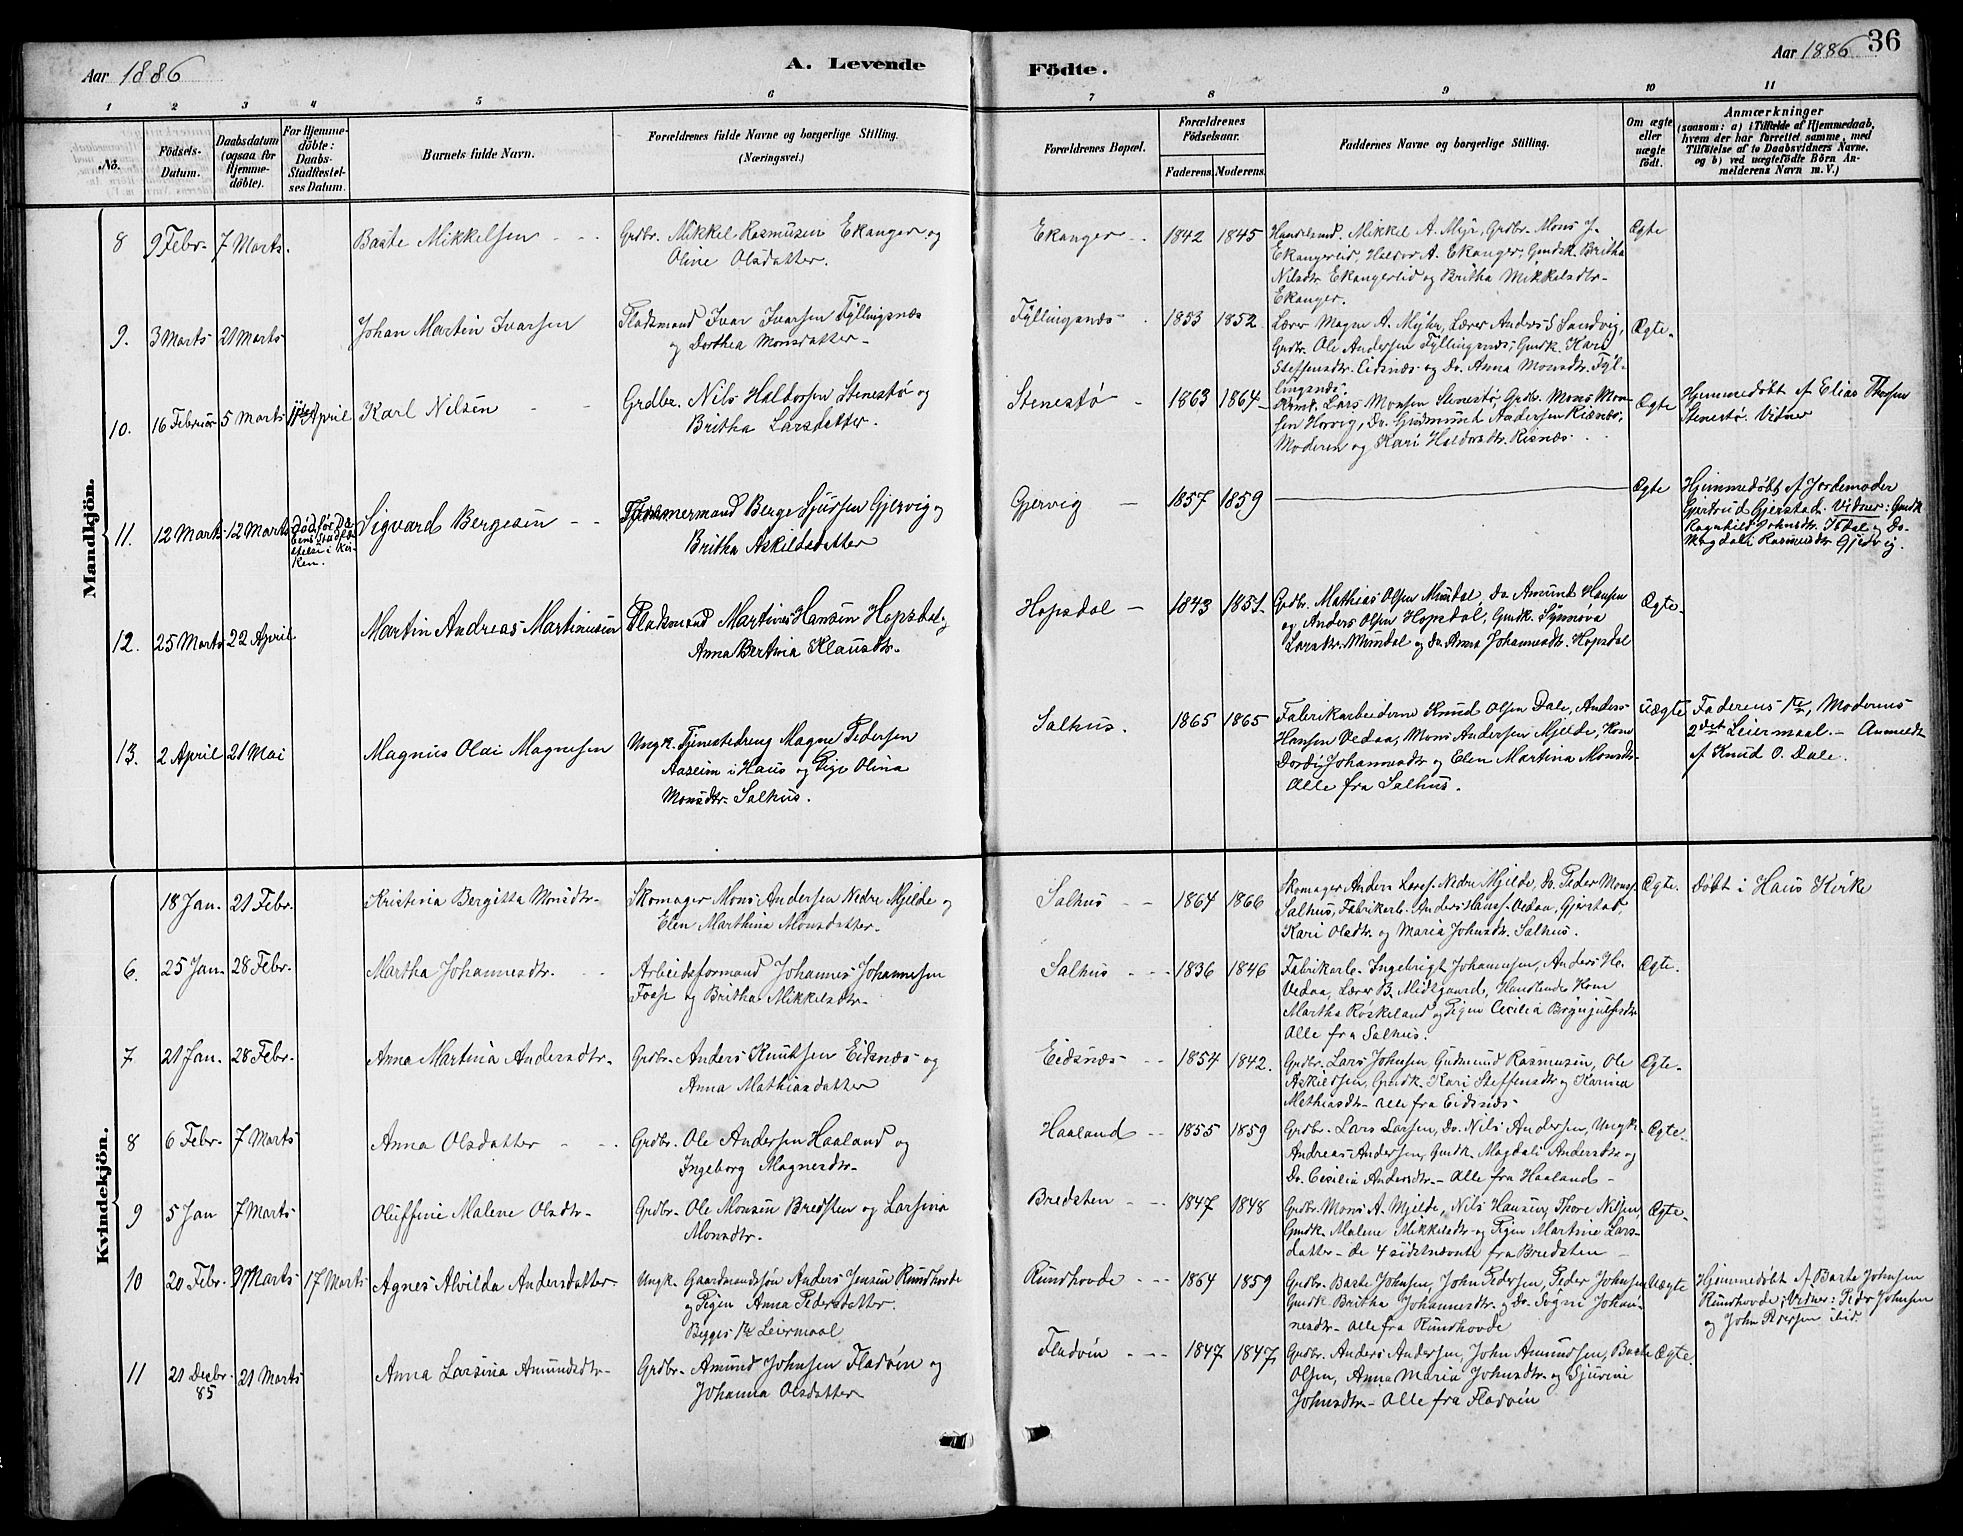 Aar 1886
A. Levende
Födte.
Aar 1886
36
1 2 3 4 5 6 7 8 9 10 11
No.
Födsels-
Datum.
Daabsdatum
(ogsaa for
Hjemme-
döbte).
For Hjemme-
döbte:
Daabs-
Stadfæstel-
ses Datum.
Barnets fulde Navn.
Forældrenes fulde Navne og borgerlige Stilling.
(Næringsvei.)
Forældrenes Bopæl.
Forældrenes
Födselsaar.
Faderens. Moderens.
Faddernes Navne og borgerlige Stilling.
Om ægte
eller
uægte
födt.
Anmærkninger
(saasom: a) i Tilfælde af Hjemmedaab,
hvem der har forrettet samme, med
Tilföielse af to Daabsvidners Navne,
og b) ved uægtefödte Börn An-
melderens Navn m. V.)
Mandkjön.
8 9 Febr. 7 Marts. Baste Mikkelsen
Grdbr. Mikkel Rasmusen Ekanger og
Oline Olsdatter.
Ekanger 1842 1845
Handelsmd. Mikkel A. Myr, Grdbr. Mons J.
Ekangerlid, Haldor A. Ekanger, Gmdsk. Britha
Nilsdtr Ekangerlid og Britha Mikkelsdtr
Ekanger.
Ægte
9. 3 Marts 21 Marts Johan Martin Ivarsen
Pladsmand Ivar Ivarsen Fyllingsnæs
og Dorthea Monsdatter
Fyllingsnæs 1853 1852
Lærer Magne A. Myhr, Lærer Anders S Sandvig,
Grdbr. Ole Andersen Fyllingsnæs, Gmdk. Kari
Steffensdtr. Eidsnæs og Do. Anna Monsdtr. Fyl-
lingsnæs.
Ægte
10. 16 Februar 5 Marts April Karl Nilsen
Grdbr. Nils Haldorsen Stenestø og
Britha Larsdatter.
Stenestø 1863 1864
Lars Monsen Stenestø, Grdbr. Mons Mon-
sen Horvig, Do. Gudmund Andersen Risnæs,
Moderen og Kari Haldorsdtr. Risnæs
Ægte
Hjemmedøbt af Elias
Stenestø. Vidner
11. 12 Marts 12 Marts
Død før Da-
bens Stadfæ-
stelse i Kir-
ken.
Sigvard Bergesen
Tømmermand Berge Sjursen Gjervig og
Britha Askildsdatter
Gjervig 1857 1859
Ægte
Hjemmedøbt af Jordemoder
Gjertrud Gjerstad. Vidner: Gmdk
Ragnhild Johnsdtr. Isdal og Do.
Magdali Rasmusdtr Gjervig.
12. 25 Marts 22 April Martin Andreas Martinusen
Pladsmand Martines Hansen Hopsdal og
Anna Bertina Klausdtr.
Hopsdal 1843 1851
Grdbr. Mathias Olsen Mundal, Do. Amund Hansen
og Anders Olsen Hopsdal, Gmdk. Synnøva
Larsdtr. Mundal og Do. Anna Johannesdtr. Hopsdal
Ægte
13. 2 April 21 Mai Magnus Olai Magnesen
Ungk. Tjenestedreng Magne Pedersen
Aaseim i Haus og Pige Olina
Monsdtr. Salhus.
Salhus. 1865 1865
Fabrikarbeiderne Knud Olsen Dale, Anders
Hansen Vedaa, Mons Andersen Mjelde, Kone
Dordi Johannesdtr og Elen Martina Monsdtr.
Alle fra Salhus.
Uægte
Faderens 1ste, Moderens
2det Leiermaal. Anmeldt
af Knud O. Dale.
Kvindekjön.
18 Jan. 21 Febr. Kristina Bergitta Monsdtr.
Skomager Mons Andersen Nedre Mjelde og
Elen Marthina Monsdatter.
Salhus 1864 1866
Skomager Anders Larss. Nedre Mjelde, Do. Peder Monss.
Salhus, Fabrikarb. Anders Hanss. Vedaa, Gjerstad,
Kari Olsdtr. og Maria Johnsdtr. Salhus.
Ægte.
Døbt i Haus Kirke
6. 25 Jan. 28 Febr. Martha Johannesdtr.
Arbeidsformand Johannes Johannesen
Foss og Britha Mikkelsdtr.
Salhus 1836 1846
Fabrikarb. Ingebrigt Johannesen, Anders H.
Vedaa, Lærer B. Midtgaard, Handlende Kone
Martha Røskeland og Pigen Cecilia Brynjulfsdtr
Alle fra Salhus.
Ægte.
7 21 Jan. 28 Febr. Anna Martina Andersdtr.
Grdbr. Anders Knutsen Eidsnæs og
Anna Mathiasdatter
Eidsnæs 1854 1842.
Grdbr. Lars Johnsen, Gudmund Rasmusen, Ole
Askildsen, Gmdk. Kari Steffensdtr og Karina
Mathiasdtr. alle fra Eidsnæs
Ægte
8 6 Febr. 7 Marts Anna Olsdatter
Grdbr. Ole Andersen Haaland og
Ingeborg Magnesdtr.
Haaland 1855 1859
Grdbr. Lars Larsen, Do. Nils Andersen, Ungk.
Andreas Andersen, Gmdk. Magdali Andersdtr og
Do. Cecilia Andersdtr. Alle fra Haaland
Ægte
9 5 Jan 7 Marts Oluffine Malene Olsdtr.
Grdbr. Ole Monsen Bredsten og Larsina
Monsdtr.
Bredsten 1847 1848
Grdbr. Mons A. Mjelde, Nils Hansen, Thore Nilsen,
Gmdk. Malene Mikkelsdtr og Pigen Martine Lars-
datter de 4 sidstnævnte fra Bredsten
Ægte
10 20 Febr. 9 Marts 17 Marts Agnes Alvilda Andersdatter
Ungk. Gaardmandssøn Anders Jensen Rundhovde
og Pigen Anna Pedersdatter.
Begges 1ste Leiermaal
Rundhovde 1864 1859
Grdbr. Baste Johnsen, John Pedersen, Peder Johnsen
Gmdk. Britha Johannesdtr. og Do. Sogni Johan-
nesdtr. alle fra Rundhovde
Uægte
Hjemmedøbt af Baste Johnsen
Rundhovde; Vidner: Peder Johnsen
og John Pedersen ibid.
11 21 Decbr. 85 21 Marts Anna Larsina Amundsdtr
Grdbr. Amund Johnsen Fladøien og
Johanna Olsdatter
Fladøien 1847 1847
Grdbr. Anders Andersen, John Amundsen, Baste
Olsen, Anna Maria Johnsdtr. og Sjurine
Johnsdtr. Alle fra Fladøien
Ægte.